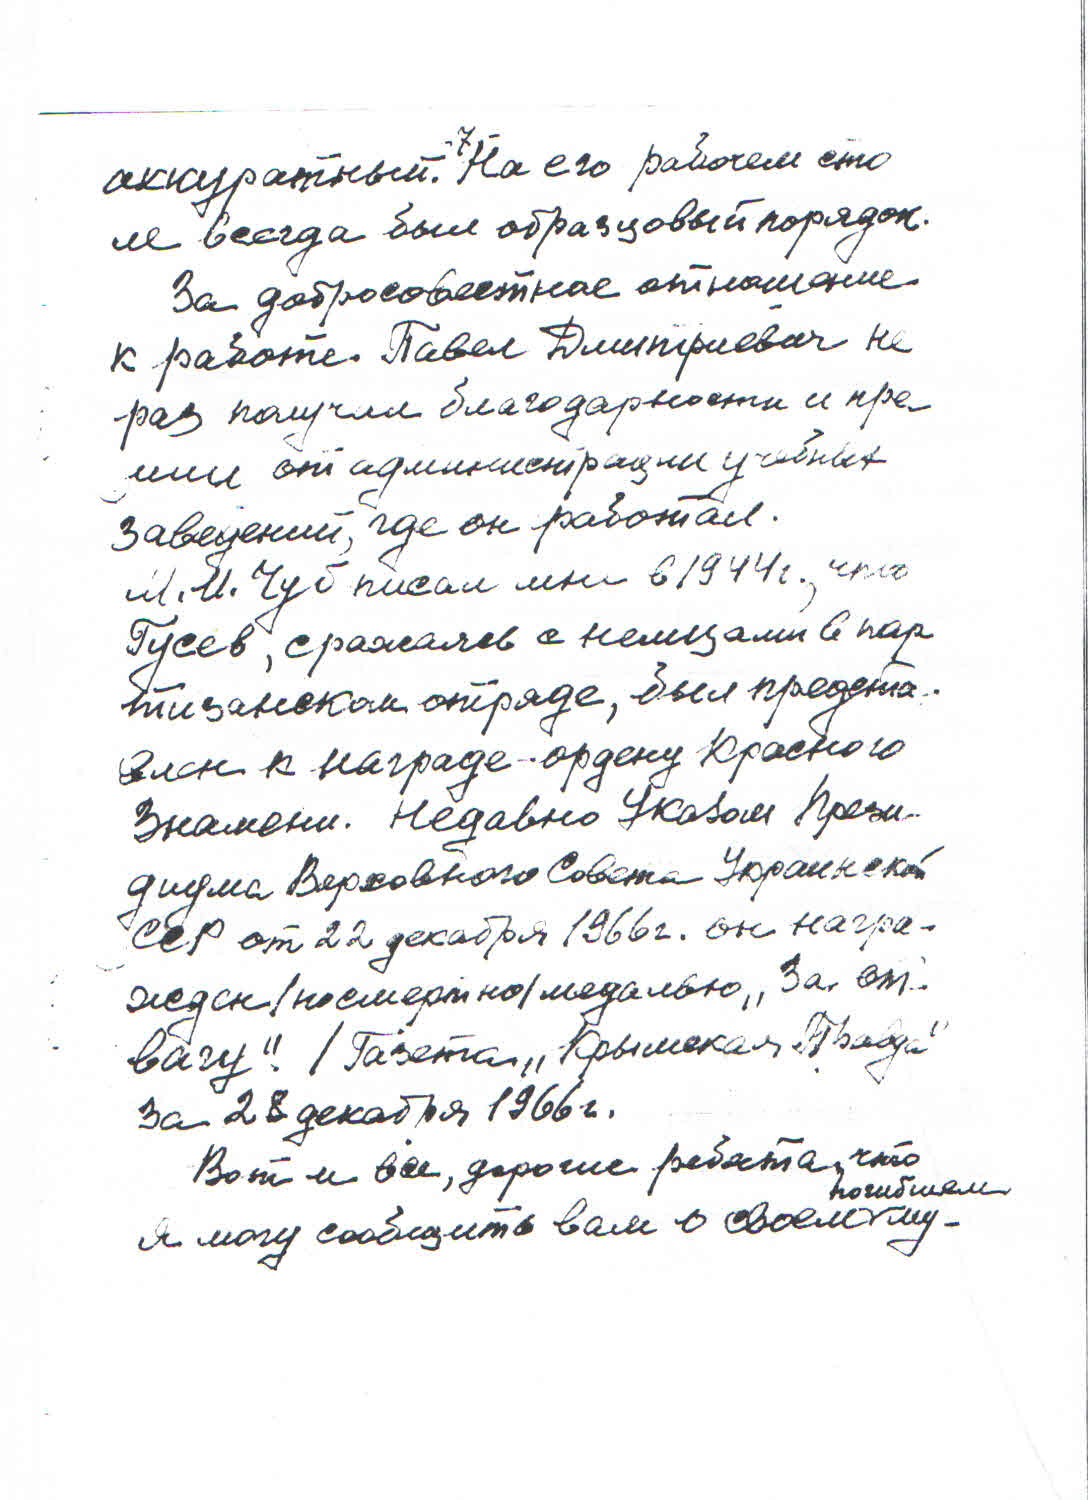 -7-
аккуратный. На его рабочем сто
ле всегда был образцовый порядок.
За добросовестное отношение
к работе Павел Дмитриевич не
раз получал благодарности и пре
мии от администрации учебных
заведений, где он работал.
М.И. Чуб писал мне в 1944г., что
Гусев, сражаясь с немцами в пар
тизанском отряде, был предста-
влен к награде - ордену Красного
Знамени. Недавно Указом Прези-
диума Верховного Совета Украинской
ССР от 22 декабря 1966г. он награ-
жден /посмертно/ медалью „За от-
вагу". / Газета „Крымская Правда"
за 28 декабря 1966г.
Вот и все, дорогие ребята, что
погибшем
я могу сообщить вам о своем му-